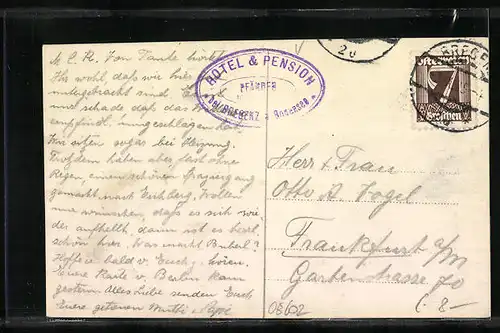 M. L. R. Von Tante hörtet
Ihr wohl, daß wir hier
untergebracht sind.
und schade daß das W
empfindl. umgeschlagen hat.
Wir sitzen sogar bei Heizung.
Trotzdem haben aber, fast ohne
Regen, einen schönen
gemacht nach Eichberg. Wollen
uns wünschen, daß es sich wie-
der aufhellt, dann ist es herrl.
schön hier. Was macht Buberl?
Hoffe bald v. Euch z. hören.
Eure Karte v. Berlin kam
gestern. Alles Liebe senden Euch
Eure getreuen Mutti
HOTEL & PENSION
PFÄNDER
bei BREGENZ a. Bodensee
20
BREGENZ
Österreich
7
Groschen
Herr u. Frau
Otto A. Vogel
Frankfurt a/M
Gartenstrasse 70
08/02
8-